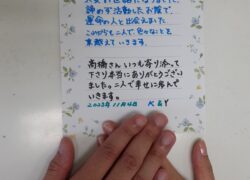 諦めず活動したお陰で、
運命の人と出会えました
これからも二人で、色々なことを
乗越えていきます。
高橋さん いつも寄り添って
下さり本当にありがとうござい
ました。二人で幸せに歩んで
いきます。
2022年11月4日 K & Y